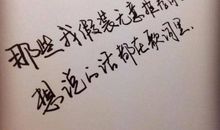 那些我假装无意推荐
想说的话都在歌词里